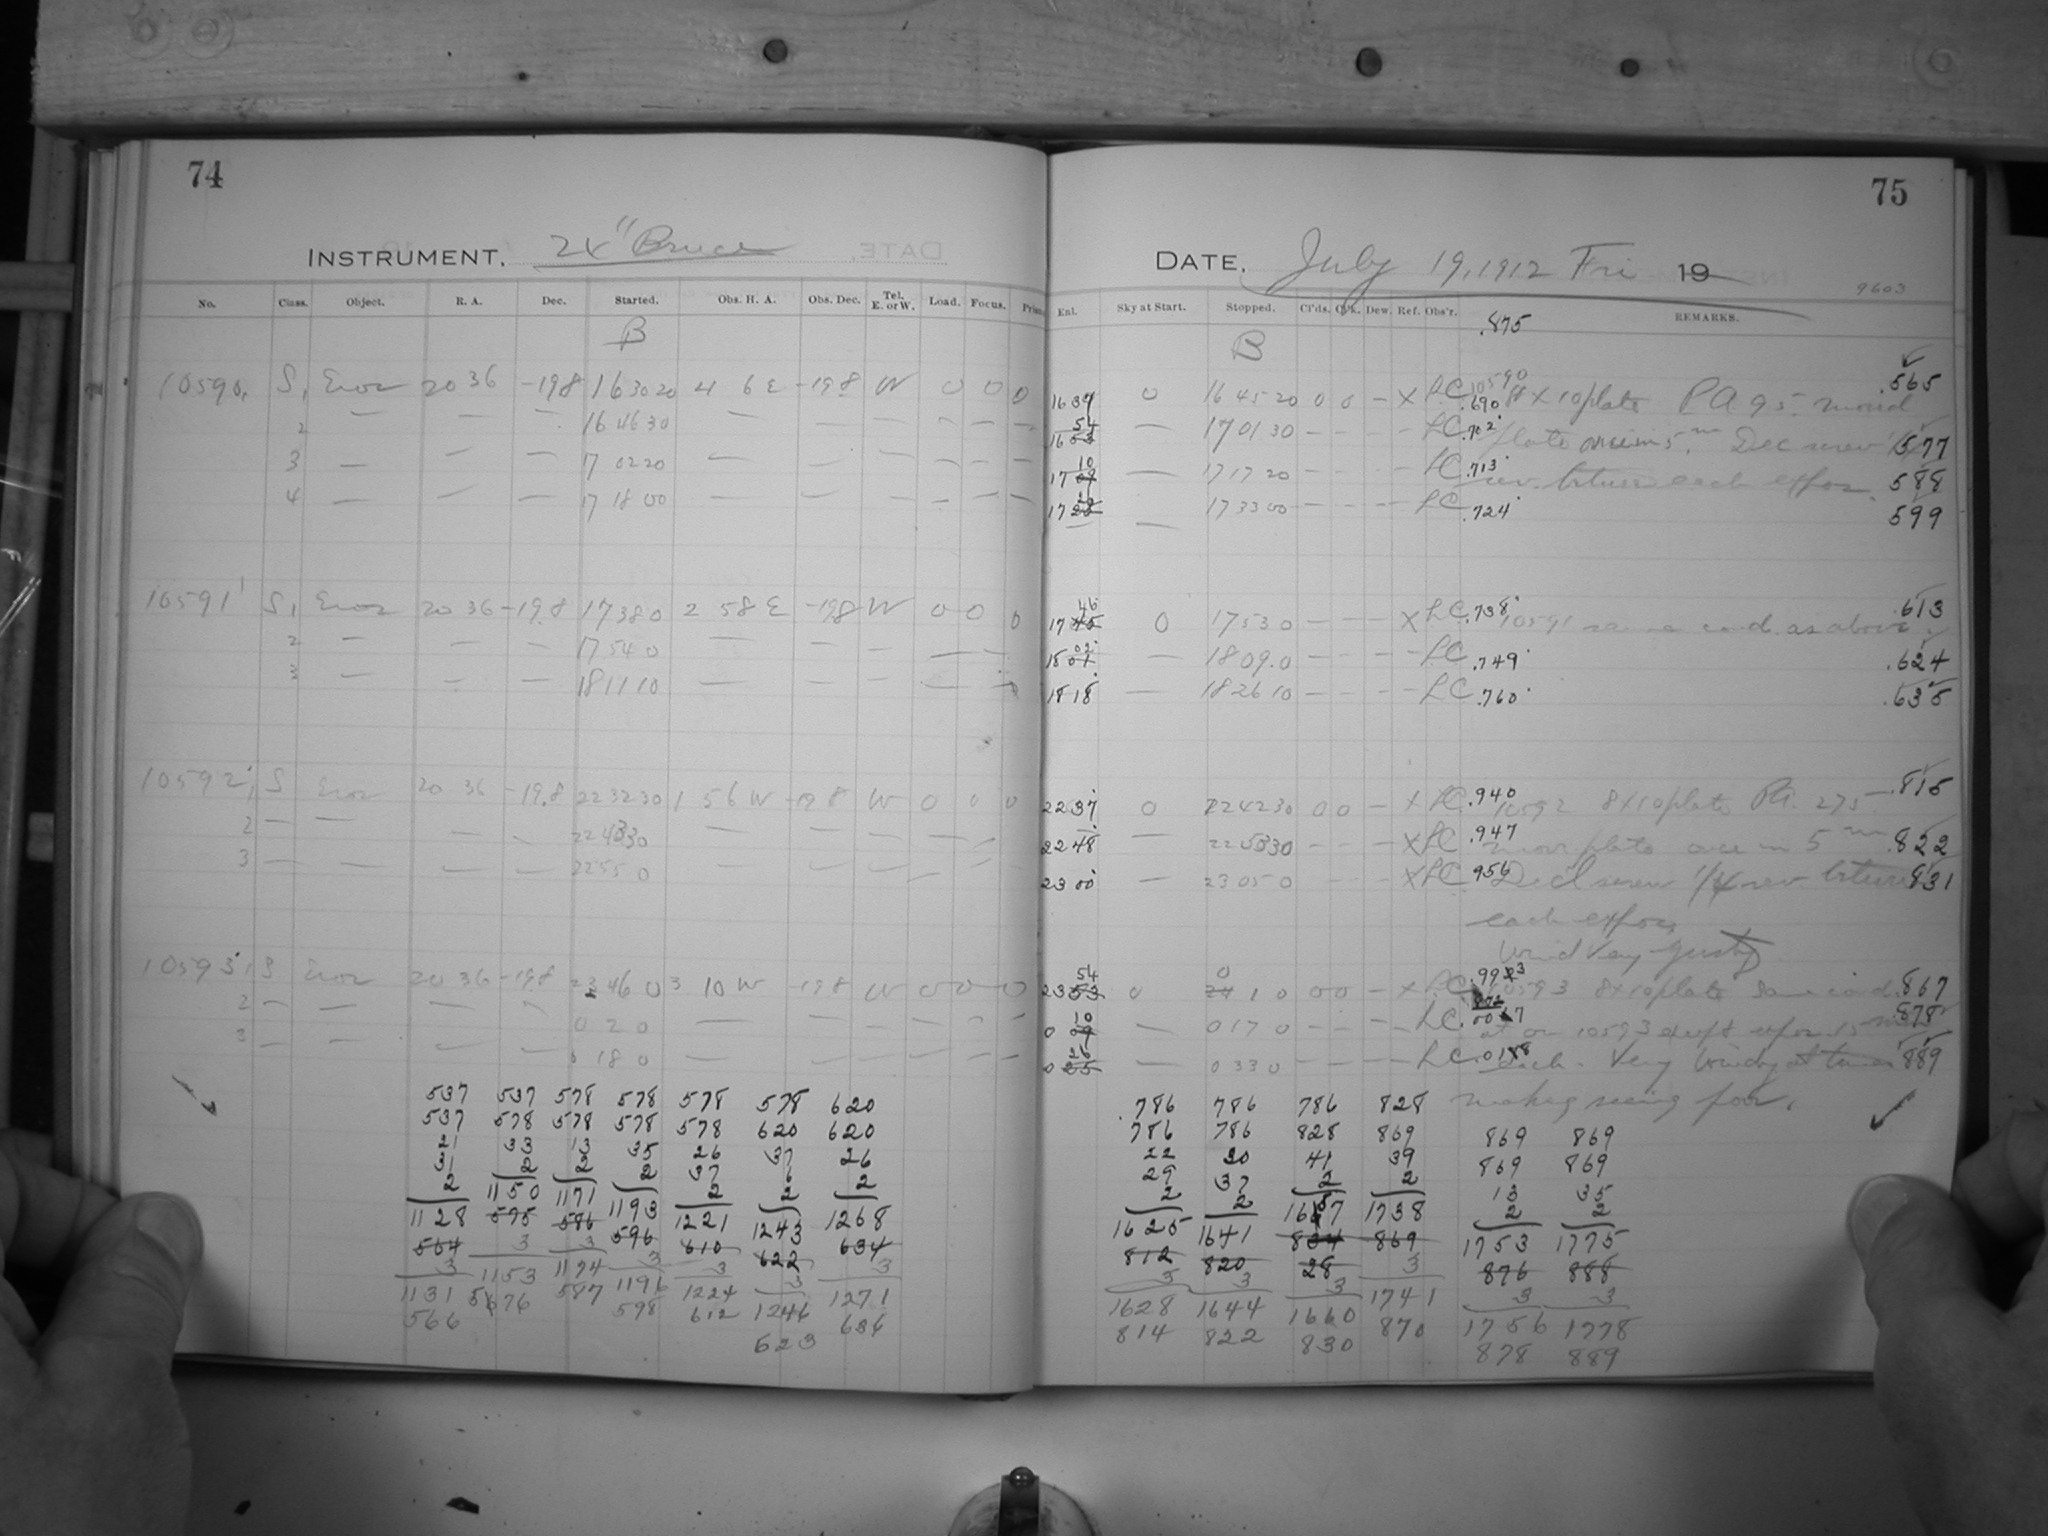 74
INSTRUMENT. 24" Bruce
No. Class. Object. R. A. Dec. Started. Obs. H. A. Obs. Dec. Tel. E. or W. Load. Focus.
B
10590, S, Eros 20 36 -19.8 16 30 20 4 6 E -19.8 W 0 0 0
2 — — — 16 46 30 — — — — — —
3 — — — 17 02 20 — — — — — —
4 — — — 17 18 00 — — — — — —
10591 S 1 Eros 20 36 -19.8 17 38 0 2 58 E -19.8 W 0 0 0
2 — — — 17 54 0 — — — — —
3 — — — 18 11 10 — — — — —
10592 1 S Eros 20 36 -19.8 22 32 30 1 56 W -19.8 W 0 0 0
2 — — — — 22 43 30 — — — — —
3 — — — — 22 55 0 — — — — —
10593 1 S Eros 20 36 -19.8 23 46 0 3 10 W -19.8 W 0 0 0
2 — — — — 0 2 0 — — — — — —
3 — — — — 0 18 0 — — — — — —
537 537 578 578 578 578 620
537 578 578 578 578 620 620
21 33 13 35 26 37 26
31 2 2 2 37 2 2
2 1150 1171 1193 2 1243 1268
1128 575 586 596 1221 622 634
564 3 3 3 610 3 3
3 1153 1174 1196 3 1246 1271
1131 576 587 598 1224 623 636
566 612
75
DATE. July 19, 1912 Fri 19
9603
Ent. Sky at Start. Stopped. Cl'ds. Dew. Ref. Obs'r. REMARKS.
.875
B
1639 0 16 45 20 0 0 — X LC .690 10590 8 x 10 plate PA 95. moved .565
16 54 — 17 01 30 — — — — LC .702 plate 5m. Dec screw 577
17 10 — 17 17 20 — — — — LC .713 rev. between each expos. 588
17 29 — 17 33 00 — — — — LC .724 599
17 46 0 17 53 0 — — — X LC .738 10591 same cond. as above .613
18 02 — 18 09.0 — — — — LC .749 .624
18 18 — 18 26 10 — — — — LC .760 .635
22 37 0 22 42 30 0 0 — X LC .940 10592 8 x 10 plate PA. 275 .815
22 48 — 22 53 30 — — — X LC .947 move plate once in 5m .822
23 00 — 23 05 0 — — — X LC .956 Decl screw 1/4 rev between 831
each expos.
Wind very gusty
23 54 0 0 1 0 0 0 — X LC 10593 8 x 10 plate same cond. .867
0 10 — 0 17 0 — — — — LC 10593 except expos 15 878
0 26 — 0 33 0 — — — — LC each. Very windy at times 889
making seeing poor.
.786 786 786 828
786 786 828 869 869 869
22 30 41 39 869 869
29 37 2 2 13 35
2 2 1657 1738 2 2
1625 1641 834 869 1753 1775
812 820 28 3 876 888
3 3 3 1741 3 3
1628 1644 1660 870 1756 1778
814 822 830 878 889